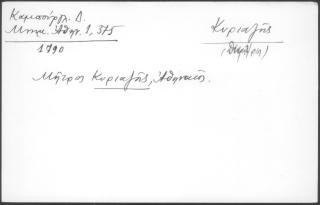 Καμπούρογλ. Δ.
Μνημ. Ἀθην. 1, 375
1790
Κυριαζῆς
Μῆτρος Κυριαζῆς, Ἀθηναῖος.